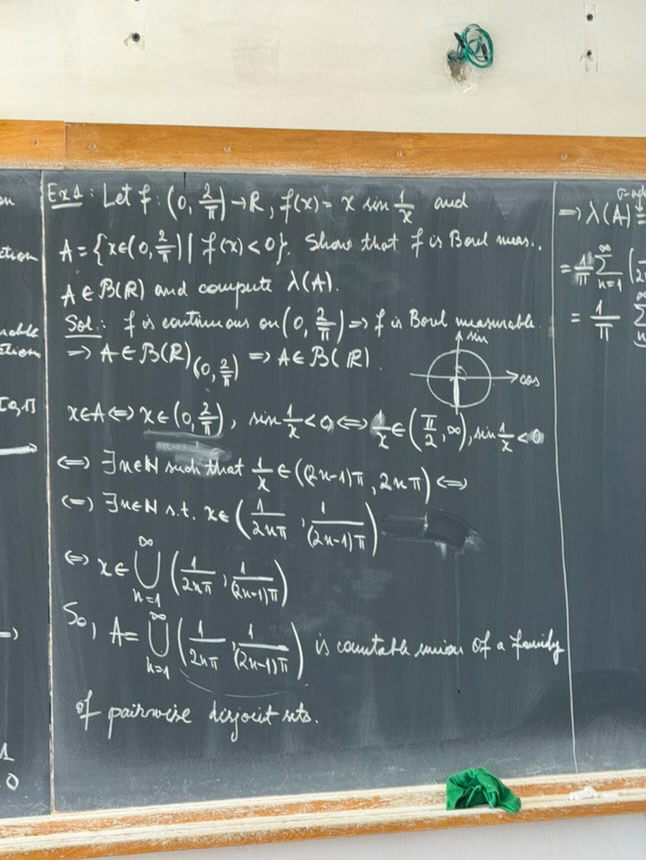 Ex1: Let f: (0, 2/π) → R, f(x) = x sin 1/x and
A = {x∈(0, 2/π) | f(x) < 0}. Show that f is Borel meas.,
A ∈ B(R) and compute λ(A).
Sol.: f is continuous on (0, 2/π) ⇒ f is Borel measurable.
⇒ A ∈ B(R)(0, 2/π) ⇒ A ∈ B(R).
sin
cos
x∈A ⇔ x∈(0, 2/π), sin 1/x < 0 ⇔ 1/x ∈ (π/2, ∞), sin 1/x < 0
⇔ ∃n∈N such that 1/x ∈ ((2n-1)π, 2nπ) ⇔
⇔ ∃n∈N s.t. x∈ (1/2nπ, 1/(2n-1)π)
⇔ x∈ ∞⋃n=1 (1/2nπ, 1/(2n-1)π)
So, A = ∞⋃n=1 (1/2nπ, 1/(2n-1)π) is countable union of a family
of pairwise disjoint sets.
⇒ λ(A) =
= 1/π ∞∑n=1 (
= 1/π ∑